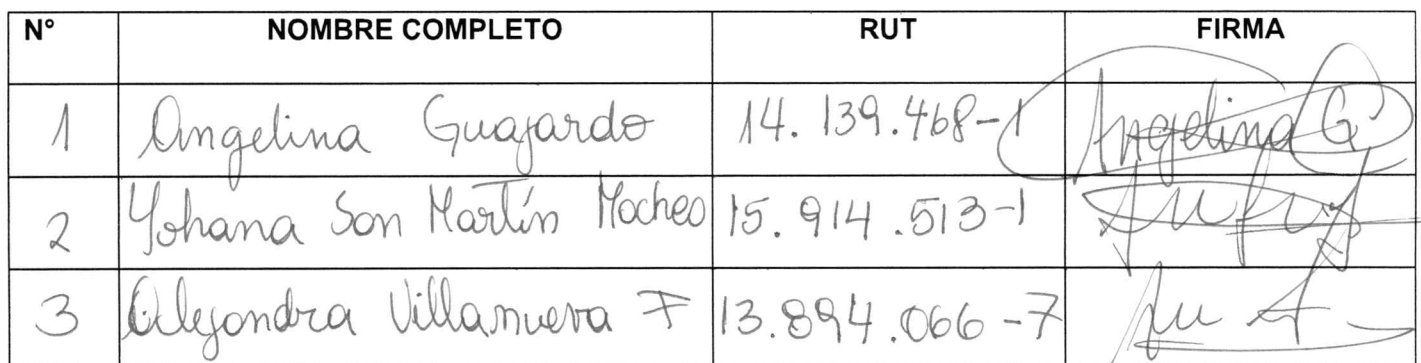 N° NOMBRE COMPLETO RUT FIRMA
1 Angelina Guajardo 14.139.468-1 Angelina G
2 Yohana San Martín Macheo 15.914.513-1
3 Alejandra Villanueva F 13.894.066-7